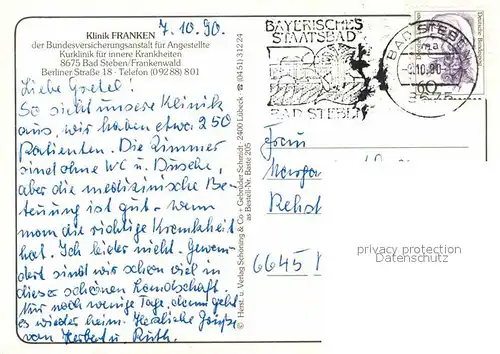 Klinik FRANKEN
der Bundesversicherungsanstalt für Angestellte
Kurklinik für innere Krankheiten
8675 Bad Steben/Frankenwald
Berliner Straße 18 · Telefon (0 92 88) 801
7.10.90.
Liebe
So sieht unsere Klinik
aus, wir haben etwa 250
Patienten. Die Zimmer
sind ohne WC u. Dusche,
aber die medizinische Be-
treuung ist gut - wenn
man die richtige Krankheit
hat. Ich leider nicht. Gewan-
dert sind wir schon viel in
dieser schönen Landschaft.
Nur noch wenige Tage, dann geht
es wieder heim. Herzliche Grüße
von Herbert u. Ruth.
© Herst. u. Verlag Schöning & Co + Gebrüder Schmidt · 2400 Lübeck ☎ (04 51) 3 12 24
Best-Nr. Baste 205
BAYERISCHES
STAATSBAD
BAD STEBEN
BAD STEBEN
.10.90
8675
Deutsche Bundespost
60
Frau
6645
privacy protection
Datenschutz